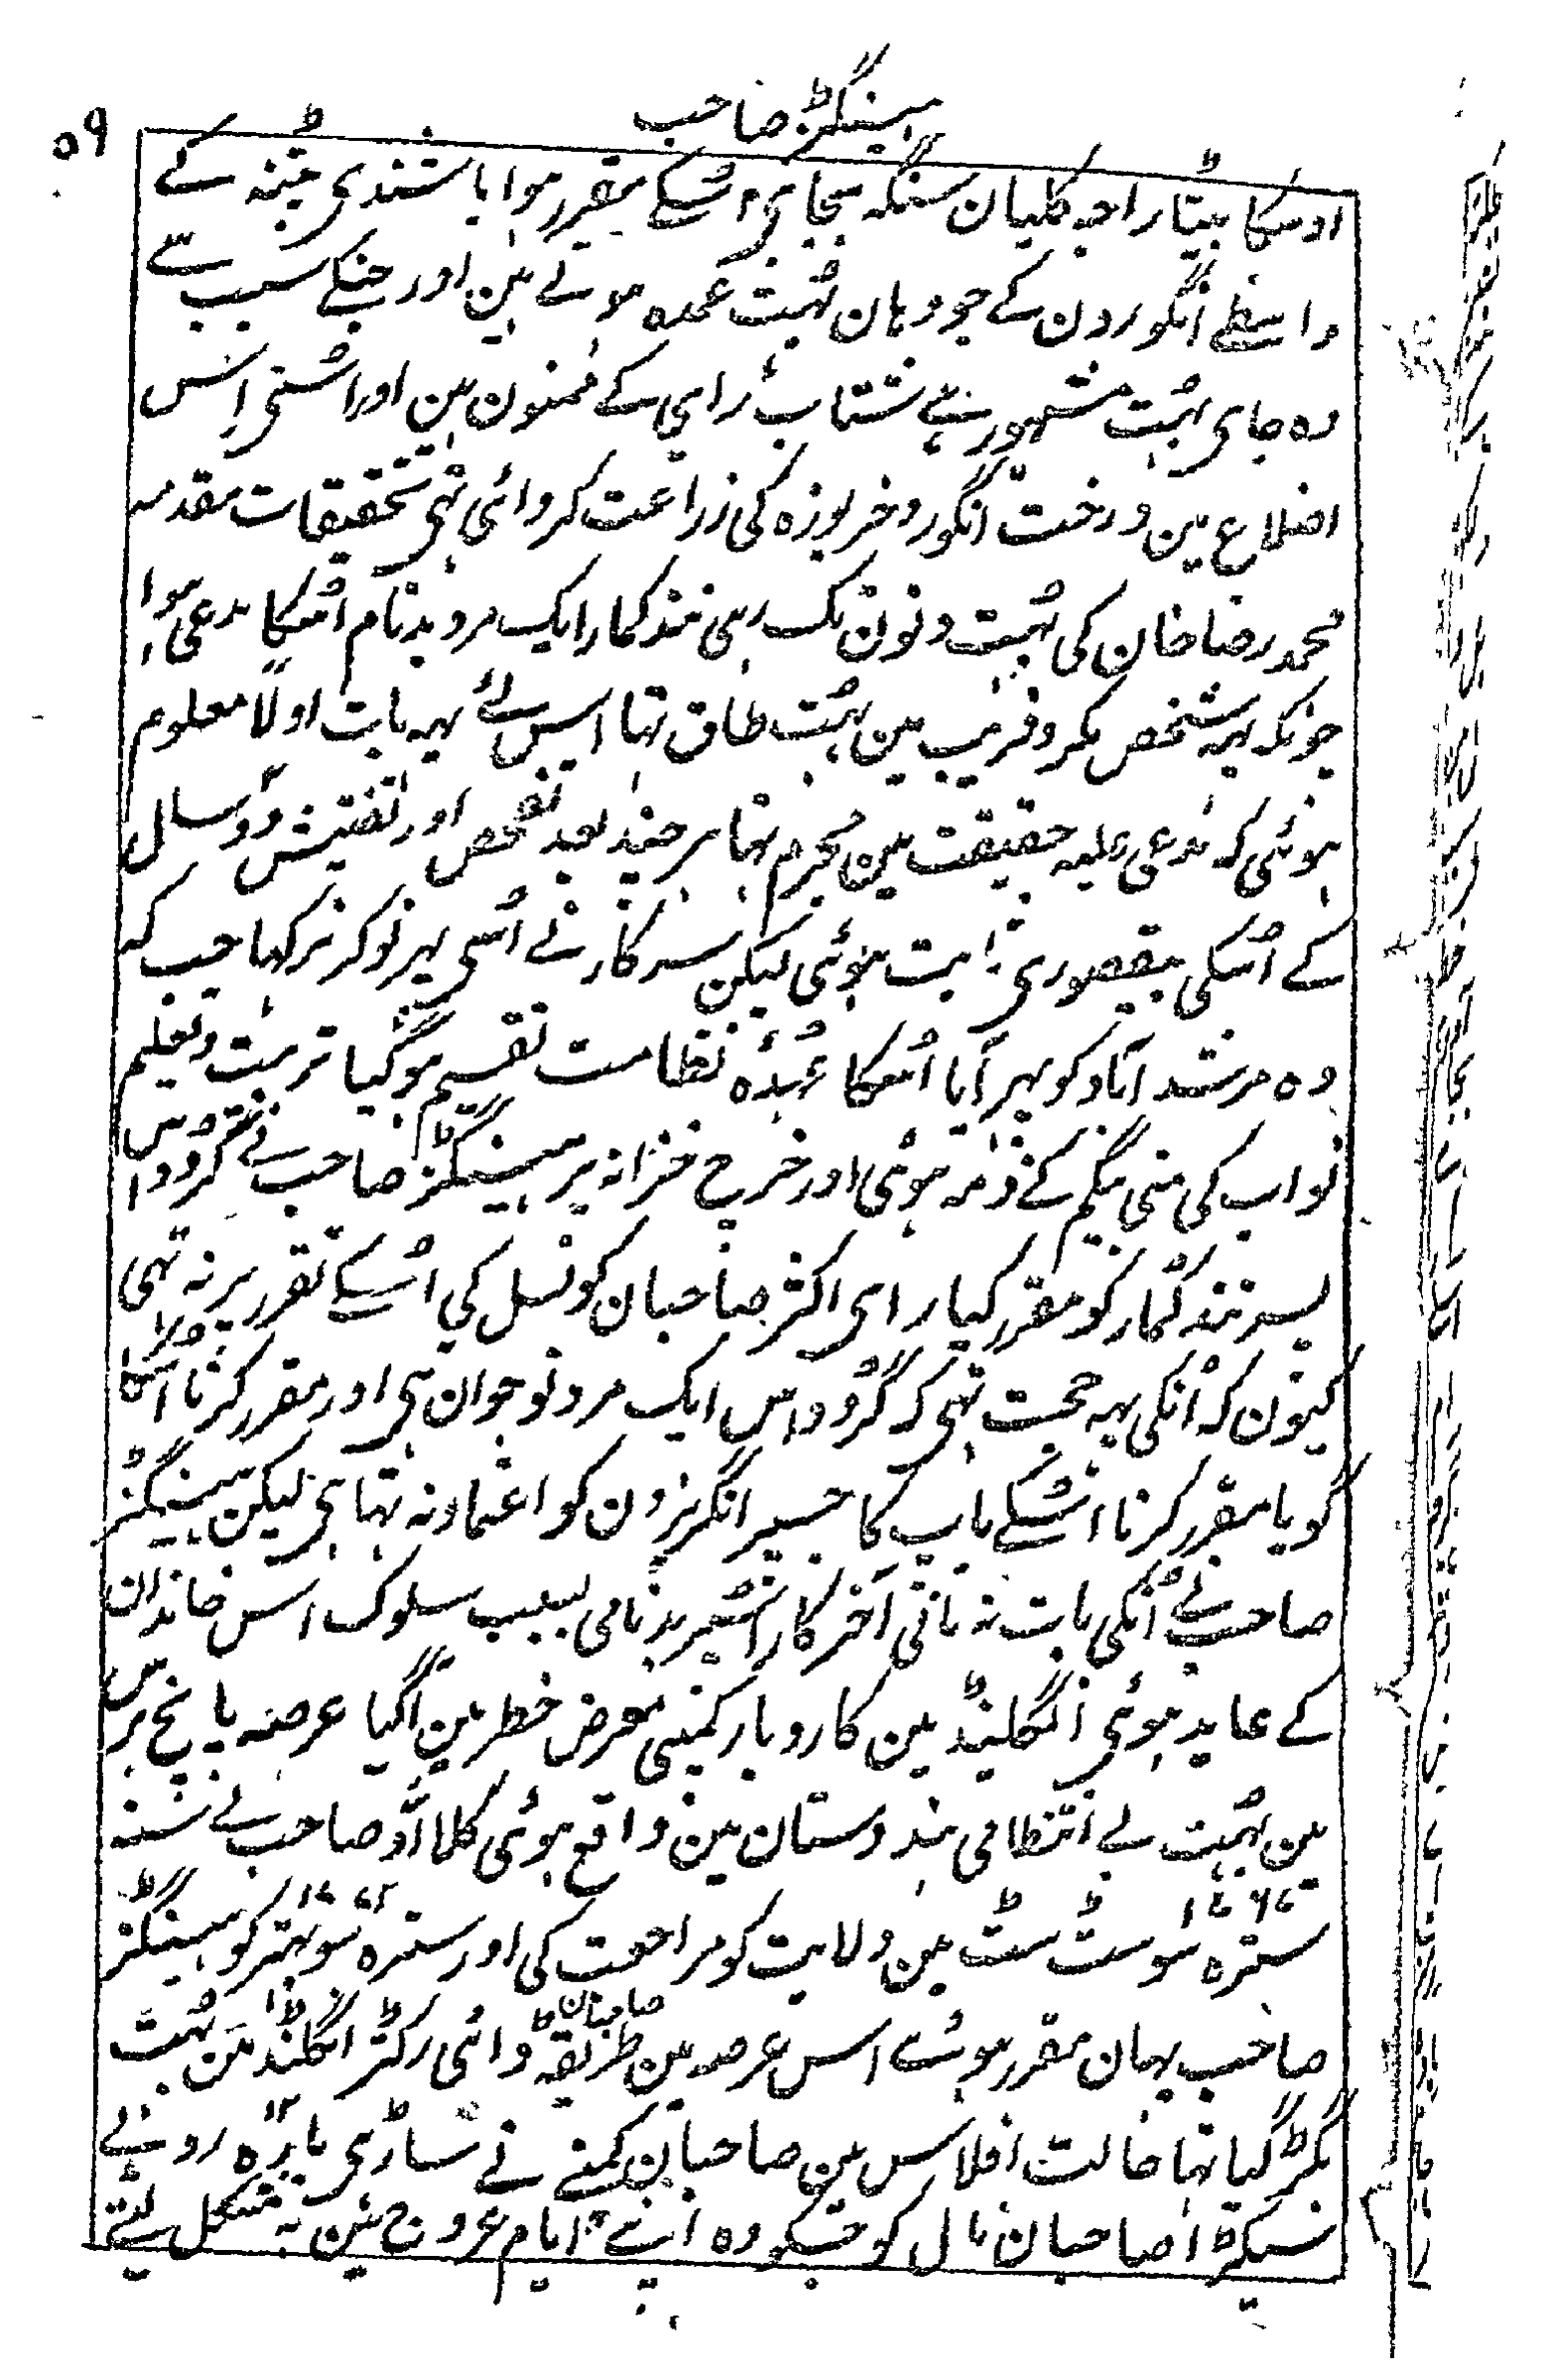 ہیسٹنگز صاحب
۵۹
اوسکا بیٹا راجہ کلیان سنگہ بجای اُسکے مقرر ہوا باشندی پٹنہ کے
واسطے انگورون کے جو وہان بہُت عمدہ ہوتے ہین اور جنکے سبب سے
وہ جای بہُت مشہور ہے شتاب رای کے ممنون ہین اور اسنے اِس
اضلاع مین درخت انگور و خربوزہ کی زراعت کروائی تہی تحقیقات مقدمہ
محمد رضا خان کی بہُت دنون تک رہی نند کمار ایک مرد بدنام اُسکا مدعی ہوا
چونکہ یہہ شخص مکر و فریب مین بہُت طاق تہا اِس لئے یہہ بات اولاً معلوم
ہوئی کہ مدعی علیہ حقیقت مین مجرم تہا ہر چند بعد تفحص اور تفتیش دو سال
کے اُسکی بیقصوری ثابت ہوئی لیکن سرکار نے اُسی پہر نوکر نرکہا جب کہ
وہ مرشد آباد کو پہر آیا اُسکا عُہدہ نظامت تقسیم ہو گیا تربیت و تعلیم
نواب کی منی بیگم کے ذمہ ہوئی اور خرچ خزانہ پر ہیسٹنگز صاحب نے گرُوداس
پسر نند کُمار کو مقرر کیا رای اکثر صاحبان کونسل کی اُسکے تقرر پر نہ تہی
کیون کہ اُنکی یہہ حجت تہی کہ گرُوداس ایک مرد نوجوان ہی اور مقرر کرنا اُسکا
گویا مقرر کرنا اُسکے باپ کا جسپر انگریزون کو اعتماد نہ تہا ہی لیکن ہیسٹنگز
صاحب نے اُنکی بات نہ مانی آخر کار اُسپر بدنامی بسبب سلوک اس خاندان
کے عاید ہوئی انگلینڈ مین کاروبار کمپنی معرض خطر مین آگیا عرصہ پانچ برس
مین بہُت بے انتظامی ہندوستان مین واقع ہوئی کلااَڈ صاحب نے سنہ
۱۷۶۷ ۱۷۷۲
سترہ سو سٹ سٹ مین ولایت کو مراجعت کی اور سترہ سو بہتر کو ہیسٹنگز
صاحب یہان مقرر ہوئے اس عرصہ مین طریقہ صاحبان ڈائی رکٹر انگلنڈ مین بہُت
بگڑ گیا تہا حالت افلاس مین صاحبان کمپنے نے ساڑہی بارہ روپئے
سیکڑا صاحبان مال کو جسکو وہ اپنے ایام عروج مین بہ مشکل لیتے